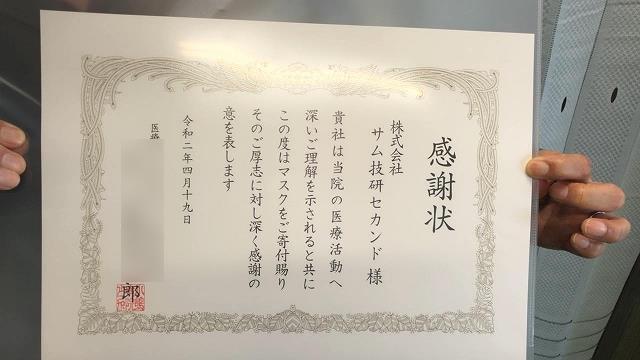 感謝状
株式会社
サム技研セカンド 様
貴社は当院の医療活動へ
深いご理解を示されると共に
この度はマスクをご寄付賜り
そのご厚志に対し深く感謝の
意を表します
令和二年四月十九日
医療
郎